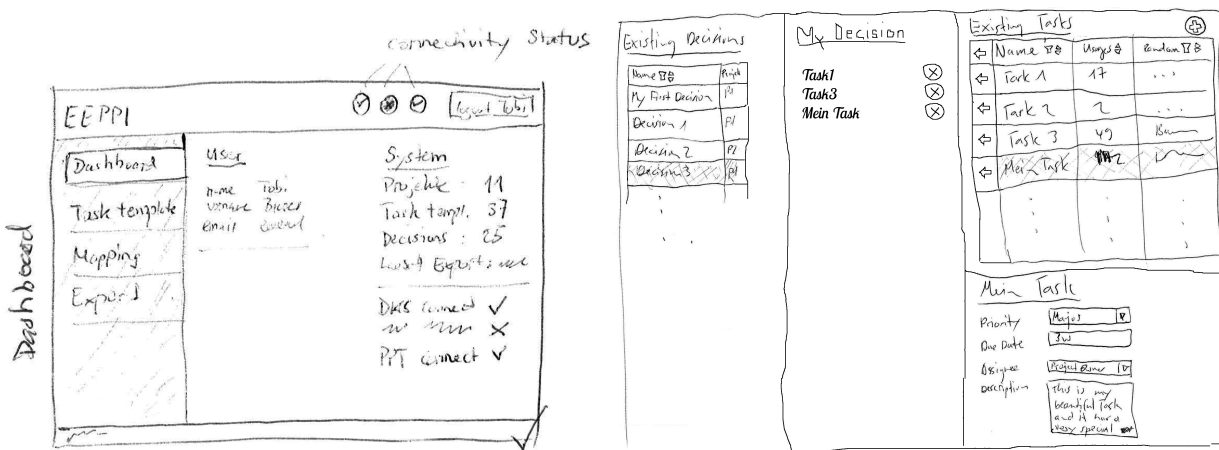 connectivity Status
EEPPI
logout Tobi
Dashboard
Dashboard
Task template
Mapping
Export
User
name Tobi
email
System
Projekte : 11
Task templ. 37
Decisions : 25
Last Export:
DKS connect
PPT connect
Existing Decisions
Name Projekt
My First Decision P1
Decision 1 P1
Decision 2 P1
Decision 3 P1
My Decision
Task1
Task3
Mein Task
Existing Tasks
Name Usages Random
Task 1 17 ...
Task 2 2 ...
Task 3 49
Mein Task 2
Mein Task
Priority Major
Due Date 3w
Assignee Project Owner
Description this is my
beautiful Task
and it has a
very special